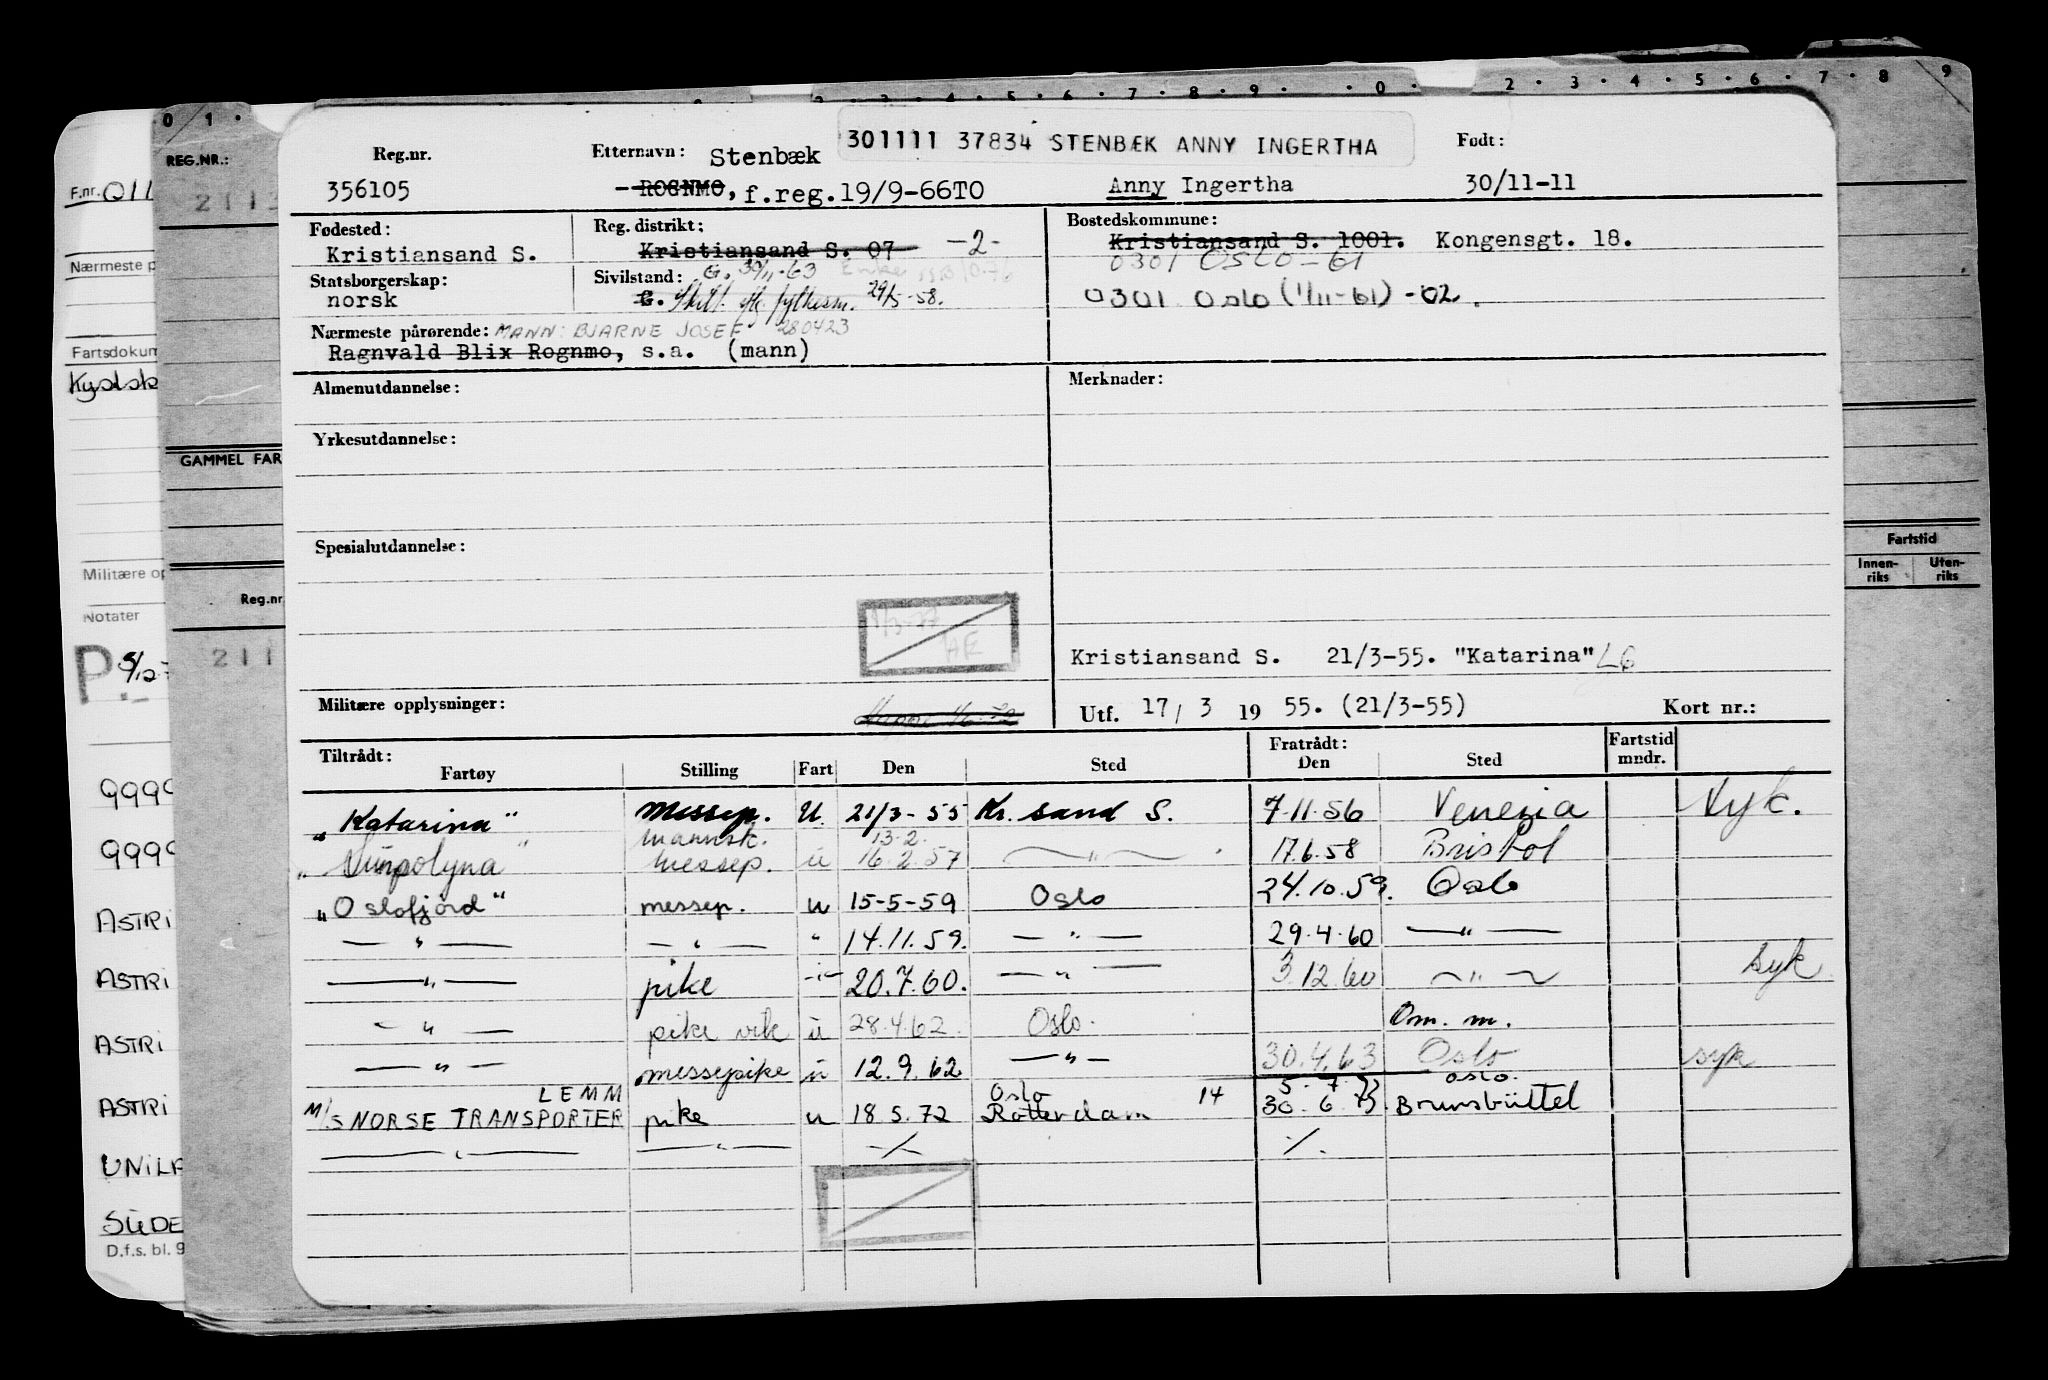 0 1 . 2 . 3 . 4 . 5 . 6 . 7 . 8 . 9 . . 0 . 2 . 3 . 4 . 5 . 6 . 7 . 8 9
REG.NR.:
F.nr. 011
Nærmeste p
Fartsdokum
Kystsk
GAMMEL FAR
Militære op
Reg.nr
Notater
211
P 5/12-7
9999
9999
ASTRI
ASTRI
ASTRI
ASTRI
UNILA
SÜDE
D.f.s. bl. 9
Fartstid
Innen-riks Uten-riks
301111 37834 STENBÆK ANNY INGERTHA
Reg.nr. Etternavn: Stenbæk Født:
356105 -ROGNMO, f.reg.19/9-66TO Anny Ingertha 30/11-11
Fødested: Reg. distrikt: Bostedskommune:
Kristiansand S. Kristiansand S. 07 -2- Kristiansand S. 1001. Kongensgt. 18.
0301 OSLO-61
Statsborgerskap: Sivilstand: G. 30/11-63 Enke
norsk G. Skilt. fylkesm. 29/5-58. 0301 Oslo (1/11-61) -02.
Nærmeste pårørende: MANN: BJARNE JOSEF 280423
Ragnvald Blix Rognmo, s.a. (mann)
Almenutdannelse: Merknader:
Yrkesutdannelse:
Spesialutdannelse:
Kristiansand S. 21/3-55. "Katarina" L6
Militære opplysninger: Utf. 17/3 19 55. (21/3-55) Kort nr.:
Tiltrådt: Fratrådt: Fartstid mndr.
Fartøy Stilling Fart Den Sted Den Sted
"Katarina" messep. U. 21/3-55 Kr. sand S. 7.11.56 Venezia syk.
mannsk. 13.2.
messep. u 16.2.57 — " — 17.6.58 Bristol
"Oslofjord" messep. u 15-5-59 Oslo 24.10.59. Oslo
— " — — " — " 14.11.59. — " — 29.4.60 — " —
— " — pike -"- 20.7.60. — " — 3.12.60 — " — syk
— " — pike vik u 28.4.62. Oslo. Om. m.
— " — messepike u 12.9.62 — " — 30.4.63 Oslo syk
LEMM Oslo 5.7.73 Oslo.
M/S NORSE TRANSPORTER pike u 18.5.72 Rotterdam 14 30.6.73 Brunsbüttel
— " — — " — -/- ./.